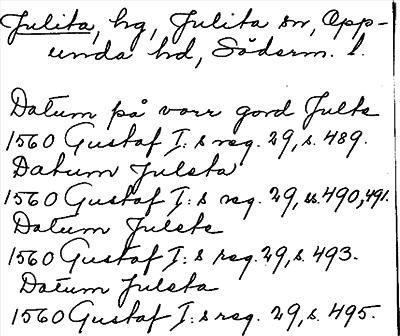 Julita, hg, Julita sn, Opp-
unda hd, Söderm. l.
Datum på vorr gord Julte
1560 Gustaf I:s reg. 29, s. 489.
Datum Julsta
1560 Gustaf I:s reg. 29, ss. 490, 491.
Datum Julste
1560 Gustaf I:s reg. 29, s. 493.
Datum Julsta
1560 Gustaf I:s reg. 29, s. 495.